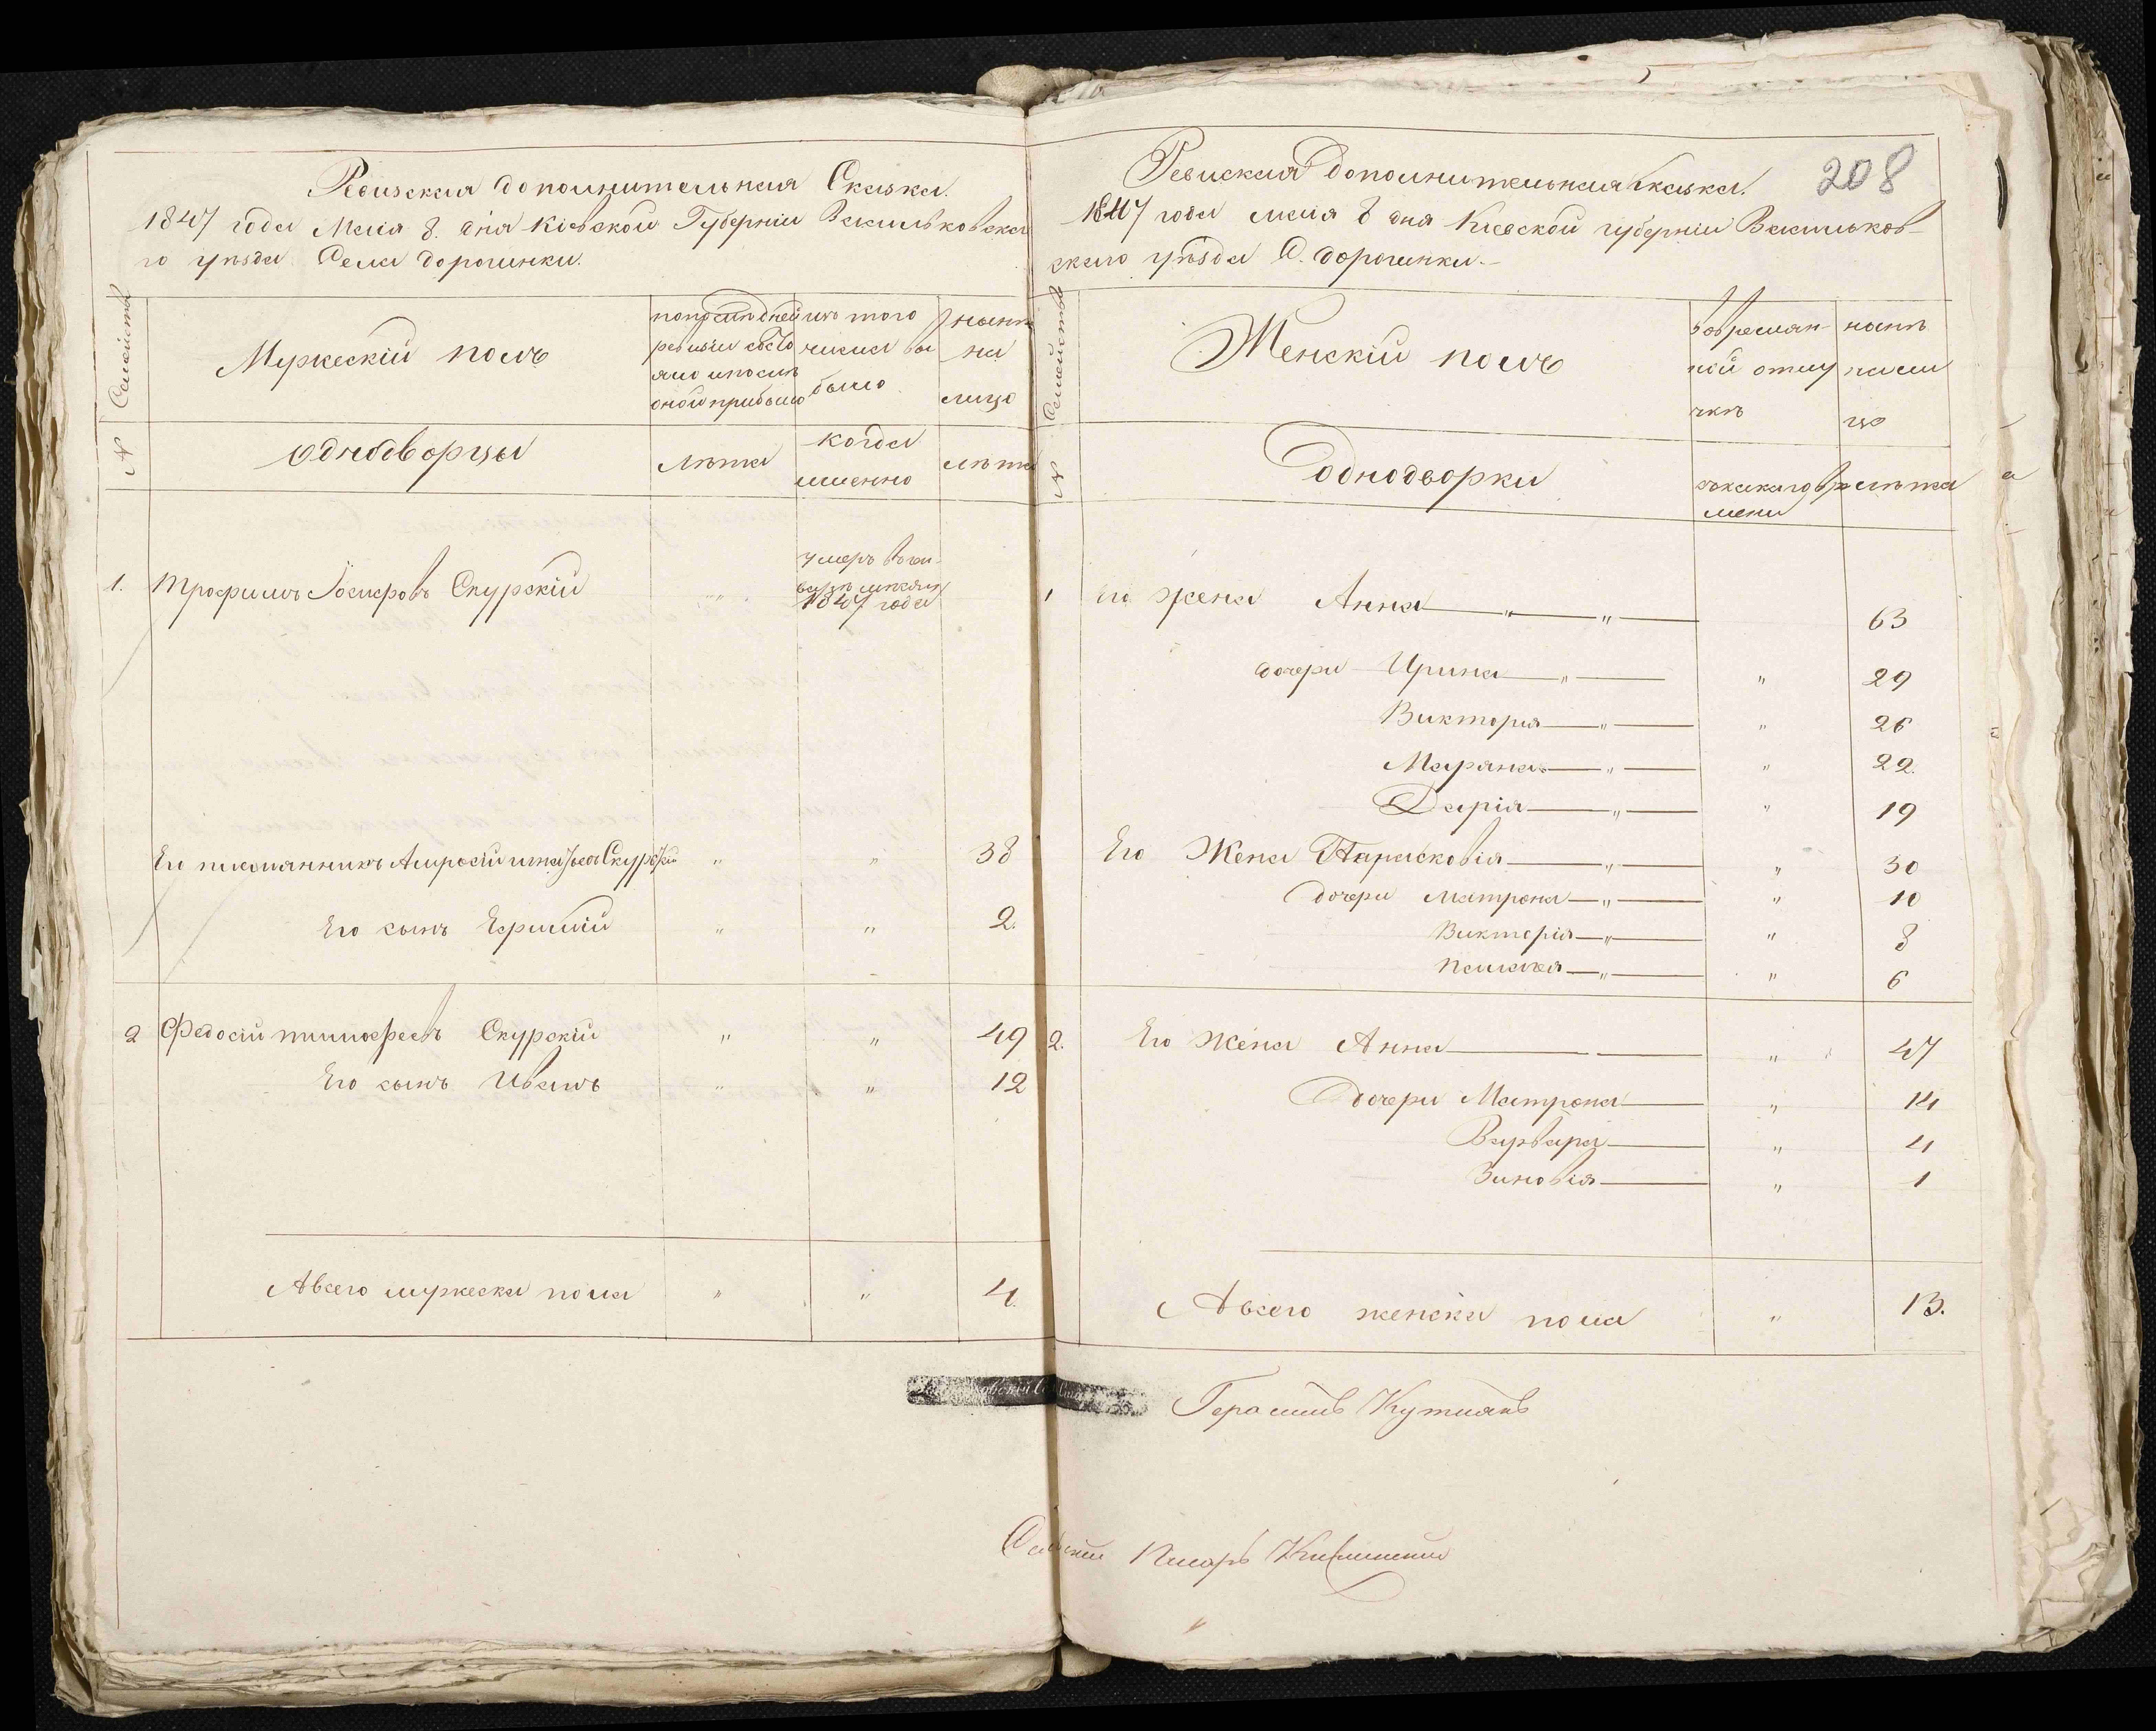 Ревизская дополнительная Сказка.
1847 года Мая 8. дня Кіевской Губерніи Васильковска
го уѣзда Села Дорогинки.
№ Семейства
Мужескій полъ
по последней
ревизіи состо
яло и после
оной прибыло
изъ того
числа вы
было
нынѣ
на
лицо
однодворцы
лѣта
когда
именно
лѣта
1. Трофимъ Іосифовъ Скурскій
умеръ въ ген-
варѣ месяцѣ
1847 года
Его племянникъ Амросій Скурскій " " 38
Его сынъ " " 2.
2 Федосій Тимофеевъ Скурскій " " 49
Его сынъ Иванъ " " 12
А всего мужеска пола " " 4.
208
Ревиская Дополнительная Сказка.
1847 года мая 8 дня Киевской губерніи Васильков-
скаго уѣзда С. Дорогинки.-
№ Семейства
Женскій полъ
во времян-
ной отлу
чкѣ
нынѣ
на ли
цо
Однодворки
съ какаго вре
мени
лѣта
1 его жена Анна " " 63
дочери Ирина " " 29
Виктория " " 26
Маряна " " 22.
Дарія " " 19
Его Жена Парасковія " " 30
дочери Матрона " " 10
Викторія " " 8
" " 6
2. Его Жена Анна " 47
дочери Матрона " 14
Варвара " 4
Зиновія " 1
А всего женска пола " 13.
Герасимъ
Сельскій Писарь